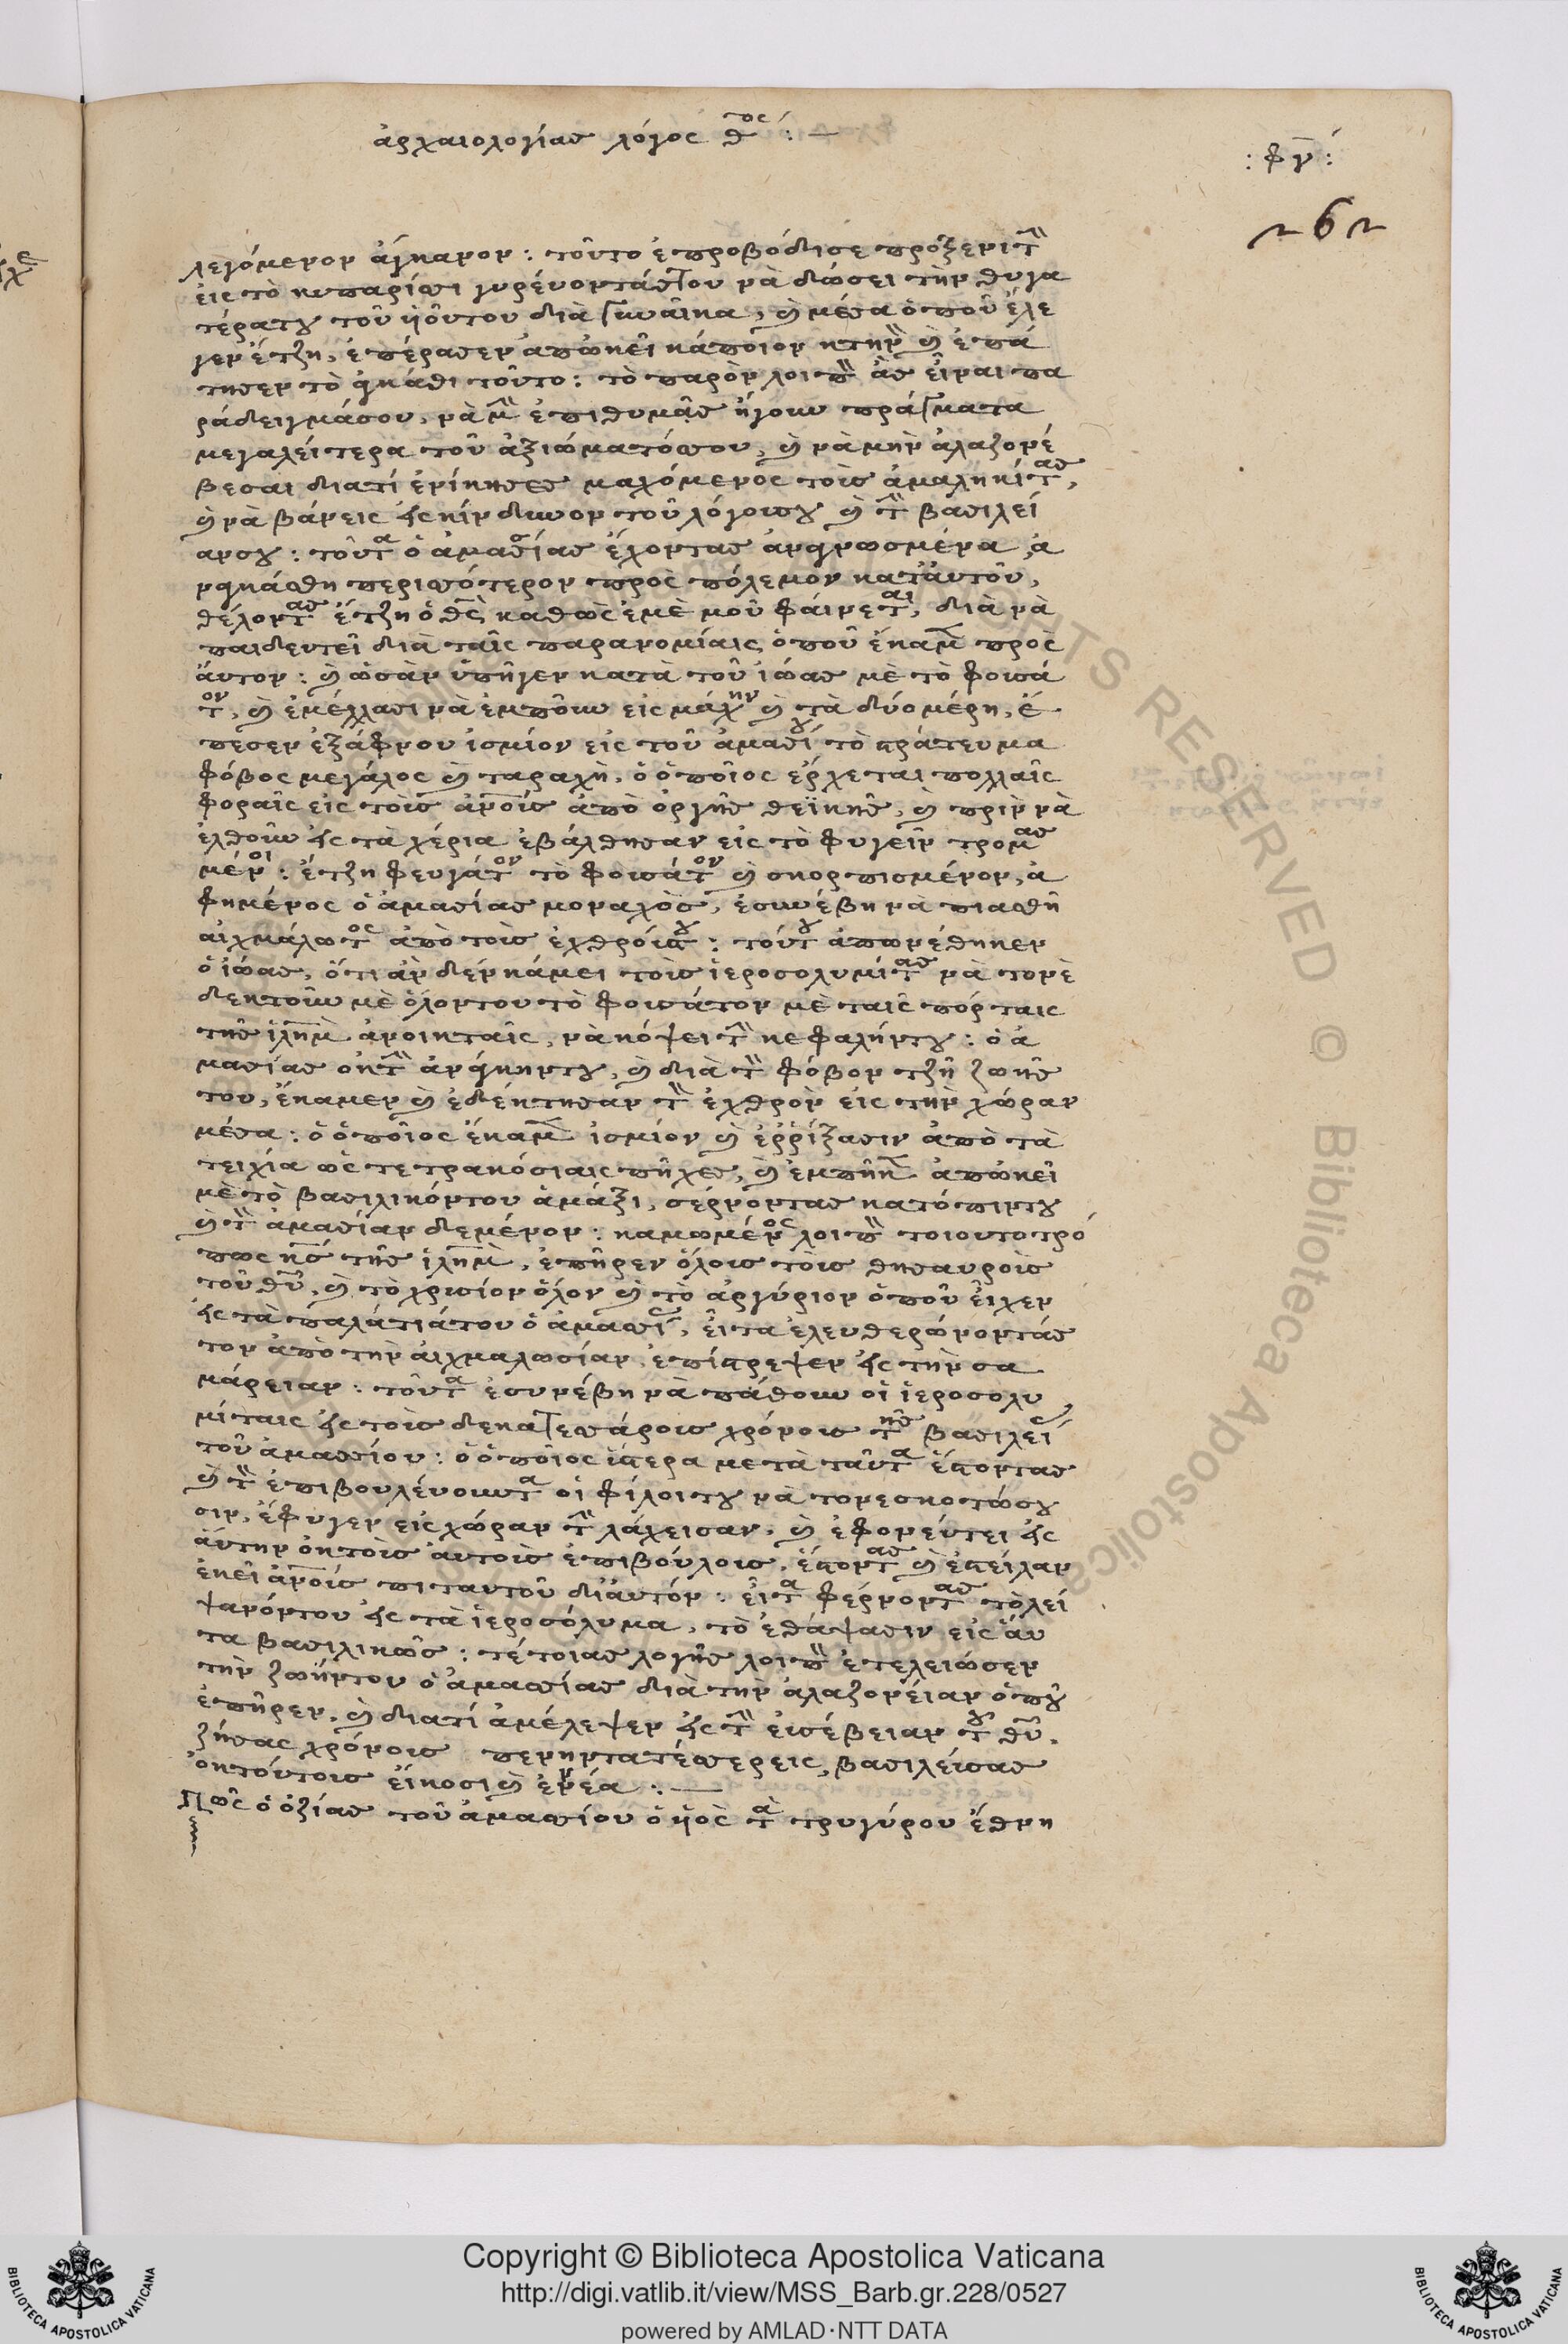 ἀρχαιολογίασ λόγος θ^ος :—
: φγ :
~6~
λεγόμενον ἄγκανον : τοῦτο ἐπροβόδισε πρόξενιτ
εἰς τὸ κυπαρίσσι γυρεύοντάστου νὰ δώσει τὴν θυγα
τέρατου τοῦ ἡοῦντου διὰ γυναῖκα, καὶ μέσα ὁποῦ ἔλε
γεν ἔτζη, ἐπέρασεν ἀπὼκεῖ κάποιον κτην καὶ ἐπά
τησεν τὸ ἀγκάθι τοῦτο : τὸ παρὸν λοιπ ἂς εἶναι πα
ράδειγμάσου, νὰ μ ἐπιθυμᾶς ἤγουν πράγματα
μεγαλείτερα τοῦ ἀξιώματόσσου, καὶ νὰ μὴν ἀλαζονέ
βεσαι διατί ἐνίκησες μαχόμενος τοὶσ ἀμαληκίτας,
καὶ νὰ βάνεις εἰς κίνδυνον τοῦ λόγουσου καὶ τ βασιλεί
ανσου : τοῦτα ὁ ἀμασίας ἔχοντας ἀγρικωσμένα, ἀ
περισσότερον πρὸς πόλεμον κατ' ἀυτοῦ,
θέλοντας ἔτζη ὁ θς, καθὼς ἐμὲ μοῦ φαίνεται, διὰ νὰ
παιδευτεῖ διὰ ταῖς παρανομίαις, ὁποῦ ἔκαμ πρὸς
ἄυτον : καὶ ὡσὰν ὑπῆγεν κατὰ τοῦ ἰώας μὲ τὸ φουσά
τον, καὶ ἐμέλλασι νὰ ἐμποῦν εἰς μάχην καὶ τὰ δύο μέρη, ἔ
πεσεν ἐξάφνου ἰσμίον εἰς τοῦ ἀμασίου τὸ στράτευμα
φόβος μεγάλος καὶ ταραχὴ, ὁ ὁποῖος ἔρχεται πολλαῖς
φοραῖς εἰς τοὶσ ἀνοίσ ἀπὸ ὀργῆσ θεϊκῆσ, καὶ πρὶν νὰ
ἐλθοῦν εἰς τὰ χέρια ἐβάλθησαν εἰς τὸ φυγεῖν τρομασ
μένοι : ἔτζη φευγάτον τὸ φουσάτον καὶ σκορπισμένον, ἀ
φημένος ὁ ἀμασίας μοναχὸσ, ἐσυνέβη νὰ πιασθῆ
αἰχμάλωτος ἀπὸ τοὶσ ἐχθροίστου : τούτου ἀπωκρέθηκεν
ὁ ἰώασ, ὅτι ἂν δὲν κάμει τοὶσ ἱεροσολυμίτας νὰ τονὲ
δεκτοῦν μὲ ὅλοντου τὸ φουσάτον μὲ ταῖς πόρταις
τῆσ ἱλημ ἀνοικταῖς, νὰ κόψει τ κεφαλήντου : ὁ ἀ
μασίας, καὶ διὰ τ φόβον τζῆ ζωῆσ
του, ἔκαμεν καὶ ἐδέκτησαν τ ἐχθρὸν εἰς τὴν χώραν
μέσα : ὁ ὁποῖος ἔκαμ ἰσμίον καὶ ἐρρίξασιν ἀπὸ τὰ
τειχία ὡς τετρακόσιαις πῆχες, καὶ ἐμπῆκ ἀπὼκεῖ
μὲ τὸ βασιλικόντου ἁμάξι, σέρνοντας κατόπιντου
καὶ τ ἀμασίαν δεμένον : καμωμένος λοιπ τοιουτοτρό
πως κσ τῆσ ἱλημ, ἐπῆρεν ὅλουσ τοὶσ θησαυροὶσ
τοῦ θυ, καὶ τὸ χρυσίον ὅλον καὶ τὸ ἀργύριον ὁποῦ εἶχεν
εἰς τὰ παλάτιάτου ὁ ἀμασί, εἶτα ἐλευθερώνοντάσ
τον ἀπὸ τὴν αἰχμαλωσίαν, ἐπίστρεψεν εἰς τὴν σα
μάρειαν : τοῦτα ἐσυνέβη νὰ πάθουν οἱ ἱεροσολυ
μίταις εἰς τοὶσ δεκατεσσάρουσ χρόνουσ τῆσ βασιλεί
τοῦ ἀμασσίου : ὁ ὁποῖος ὕστερα μετὰ ταῦτα ἔστοντας
καὶ τ ἐπιβουλεύουντα οἱ φίλοιτου νὰ τονεσκοτώσου
σιν, ἔφυγεν εἰς χώραν τ λάχεισαν, καὶ ἐφονεύτει εἰς
ἄυτην ὀκτοὶσ ἀυτοὶσ ἐπιβούλουσ, ἔστοντας καὶ ἐστείλαν
ἐκεῖ ἀνοίσ πιταυτοῦ δι' ἀυτόν : εἶτα φέρνοντας τὸ λεί
ψανόντου εἰς τὰ ἱεροσόλυμα, τὸ ἐθάψασιν εἰς ἄυ
τα βασιλικῶσ : τέτοιας λογῆσ λοιπ ἐτελειώσεν
τὴν ζωήντου ὁ ἀμασσίας διὰ τὴν ἀλαζονείαν ὁποῦ
ἐπῆρεν, καὶ διατί ἀμέλεψεν εἰς τ εὐσέβειαν τοῦ θυ,
ζήσας χρόνουσ πενηντατέσσερεις, βασιλεύσας
ὀκτόυτουσ εἴκοσι καὶ ἐννέα :—
Πῶς ὁ ὀζίας τοῦ ἀμασσίου ὁ ἡὸς τὰ τρυγύρου ἔθνη